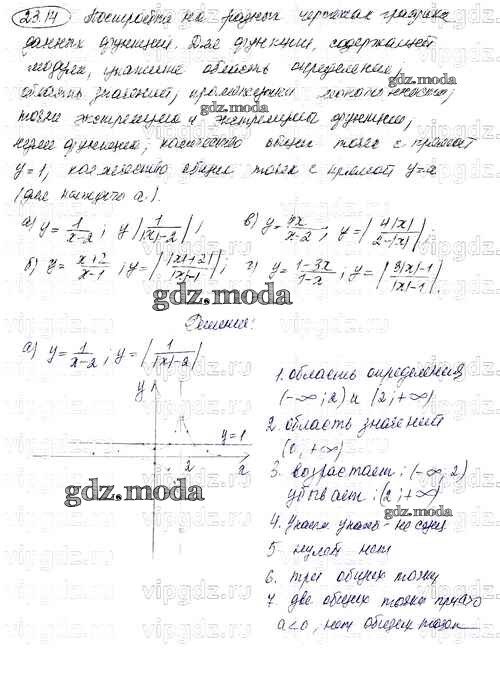 23.14 Постройте на разных чертежах графики
данных функций. Для функции, содержащей
модуль, укажите область определения,
область значений, промежутки монотонности,
точки экстремума и экстремумы функции,
нули функции, количество общих точек с прямой
y=1, количество общих точек с прямой y=a
(для каждого a).
а) y=1/x-2; y|1/|x|-2|; в) y=4x/x-2; y=|4|x|/2-|x||;
б) y=x+2/x-1; y=||x|+2|/|x|-1|; г) y=1-3x/1-x; y=|3|x|-1/|x|-1|.
gdz.moda
gdz.moda
Решение:
а) y=1/x-2; y=|1/|x|-2|
y
y=1
2
x
gdz.moda
gdz.moda
1. область определения
(-∞; 2) и (2; +∞)
2. область значений
(0, +∞)
3. возрастает: (-∞, 2)
убывает: (2; +∞)
4.
5. нулей нет
6. три общих точки
7. две общих точки при a>0
a<0, нет общих точек
vipgdz.ru